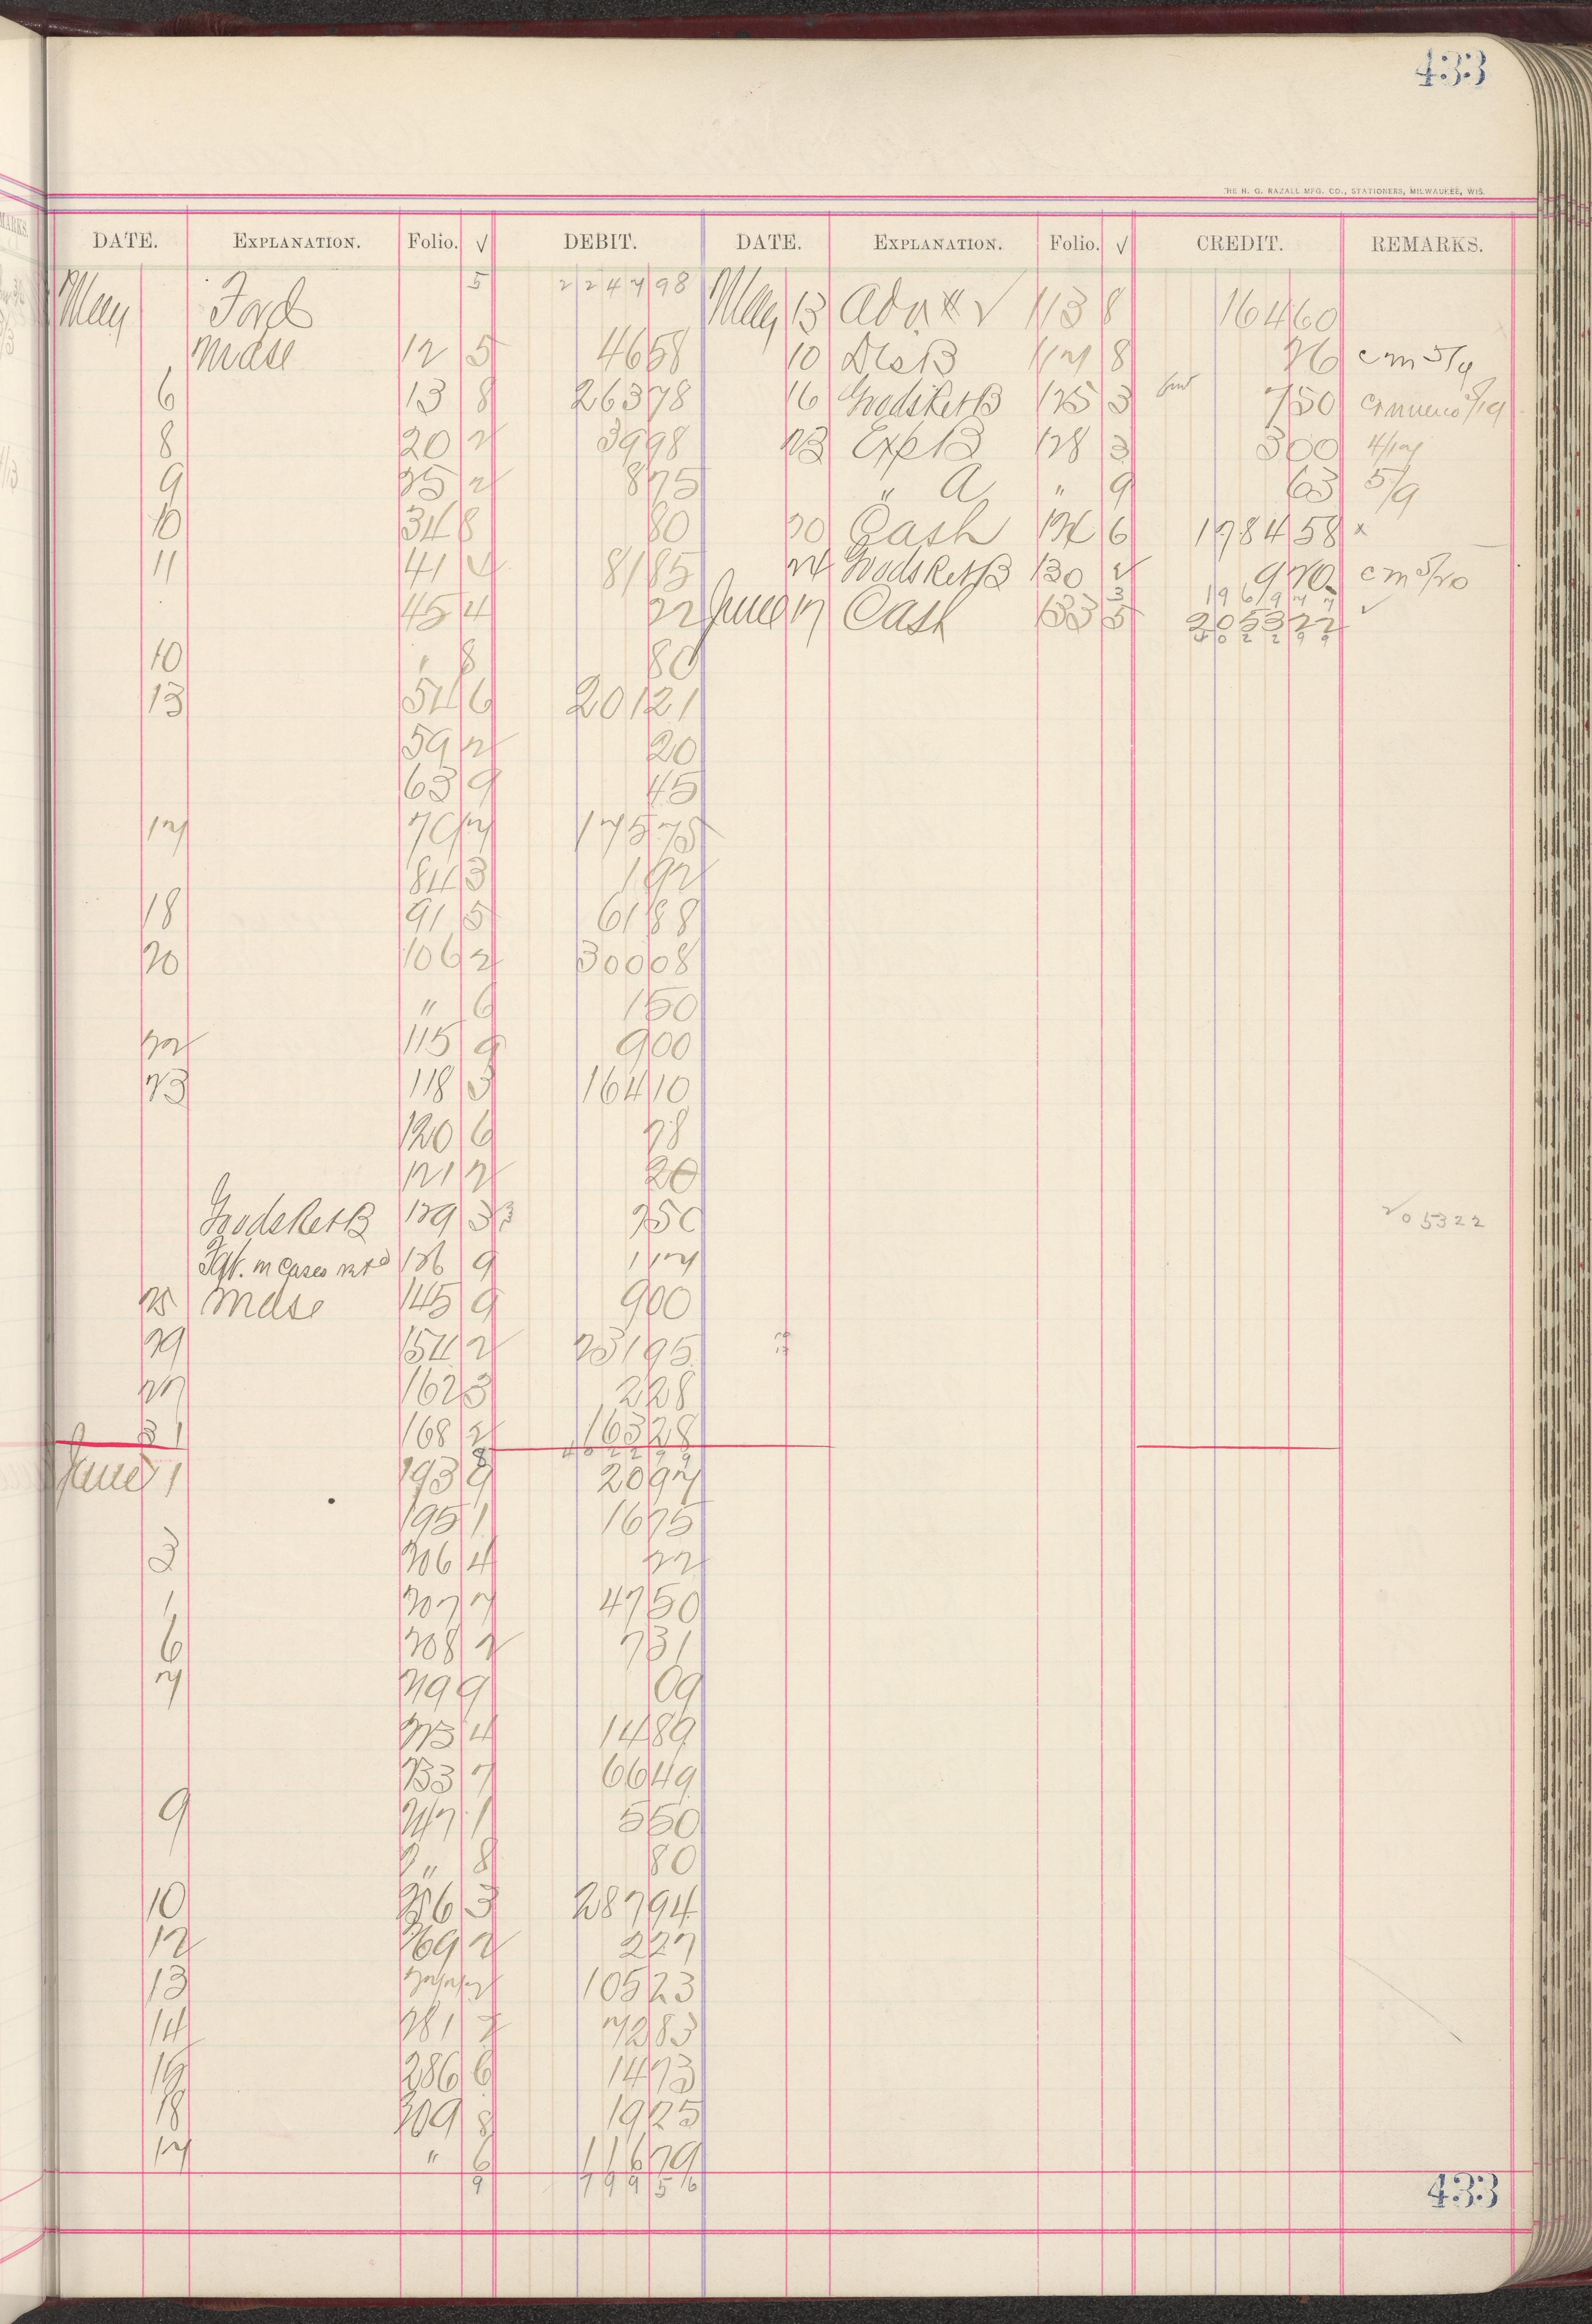 433
THE H. G. RAZALL MFG. CO., STATIONERS, MILWAUKEE, WIS.
DATE. EXPLANATION. Folio. √ DEBIT. DATE. EXPLANATION. Folio. √ CREDIT. REMARKS.
May Ford 5 2247 98 May 13 113 8 164 60
Mdse 12 5 46 58 10 Dis B 117 8 26 cm 5/9
6 13 8 263 78 16 Gods Ret B 125 3 7 50 5/19
8 20 2 39 98 23 Exp B 128 3 3 00 4/27
9 25 2 8 75 " A " 9 63 5/9
10 34 8 80 20 Cash 124 6 1784 58 x
11 41 81 85 24 Gods Ret B 130 2 9 20 cm 5/20
3 1969 77
45 4 22 June 17 Cash 133 5 2053 22 ✓
4022 99
10 " 8 80
13 54 6 201 21
59 2 20
63 9 45
17 70 7 175 75
84 3 1 92
18 91 5 61 88
20 106 2 300 08
" 6 1 50
22 115 9 9 00
23 118 3 164 10
120 6 28
121 2 20
Gods Ret B 129 3 7 50
205322
136 9 1 17
25 Mdse 145 9 9 00
29 154 2 231 95
27 162 3 2 28
31 168 2 163 28
8 4022 99
June 1 193 9 20 97
195 1 16 75
3 206 4 22
207 7 47 50
6 208 2 7 31
7 219 9 09
225 4 14 89
233 7 66 49
9 247 1 5 50
" 8 80
10 256 3 287 94
12 269 2 2 27
13 277 2 105 23
14 281 2 72 83
16 286 6 14 73
18 309 8 19 25
17 " 6 116 79
9 799 56
433